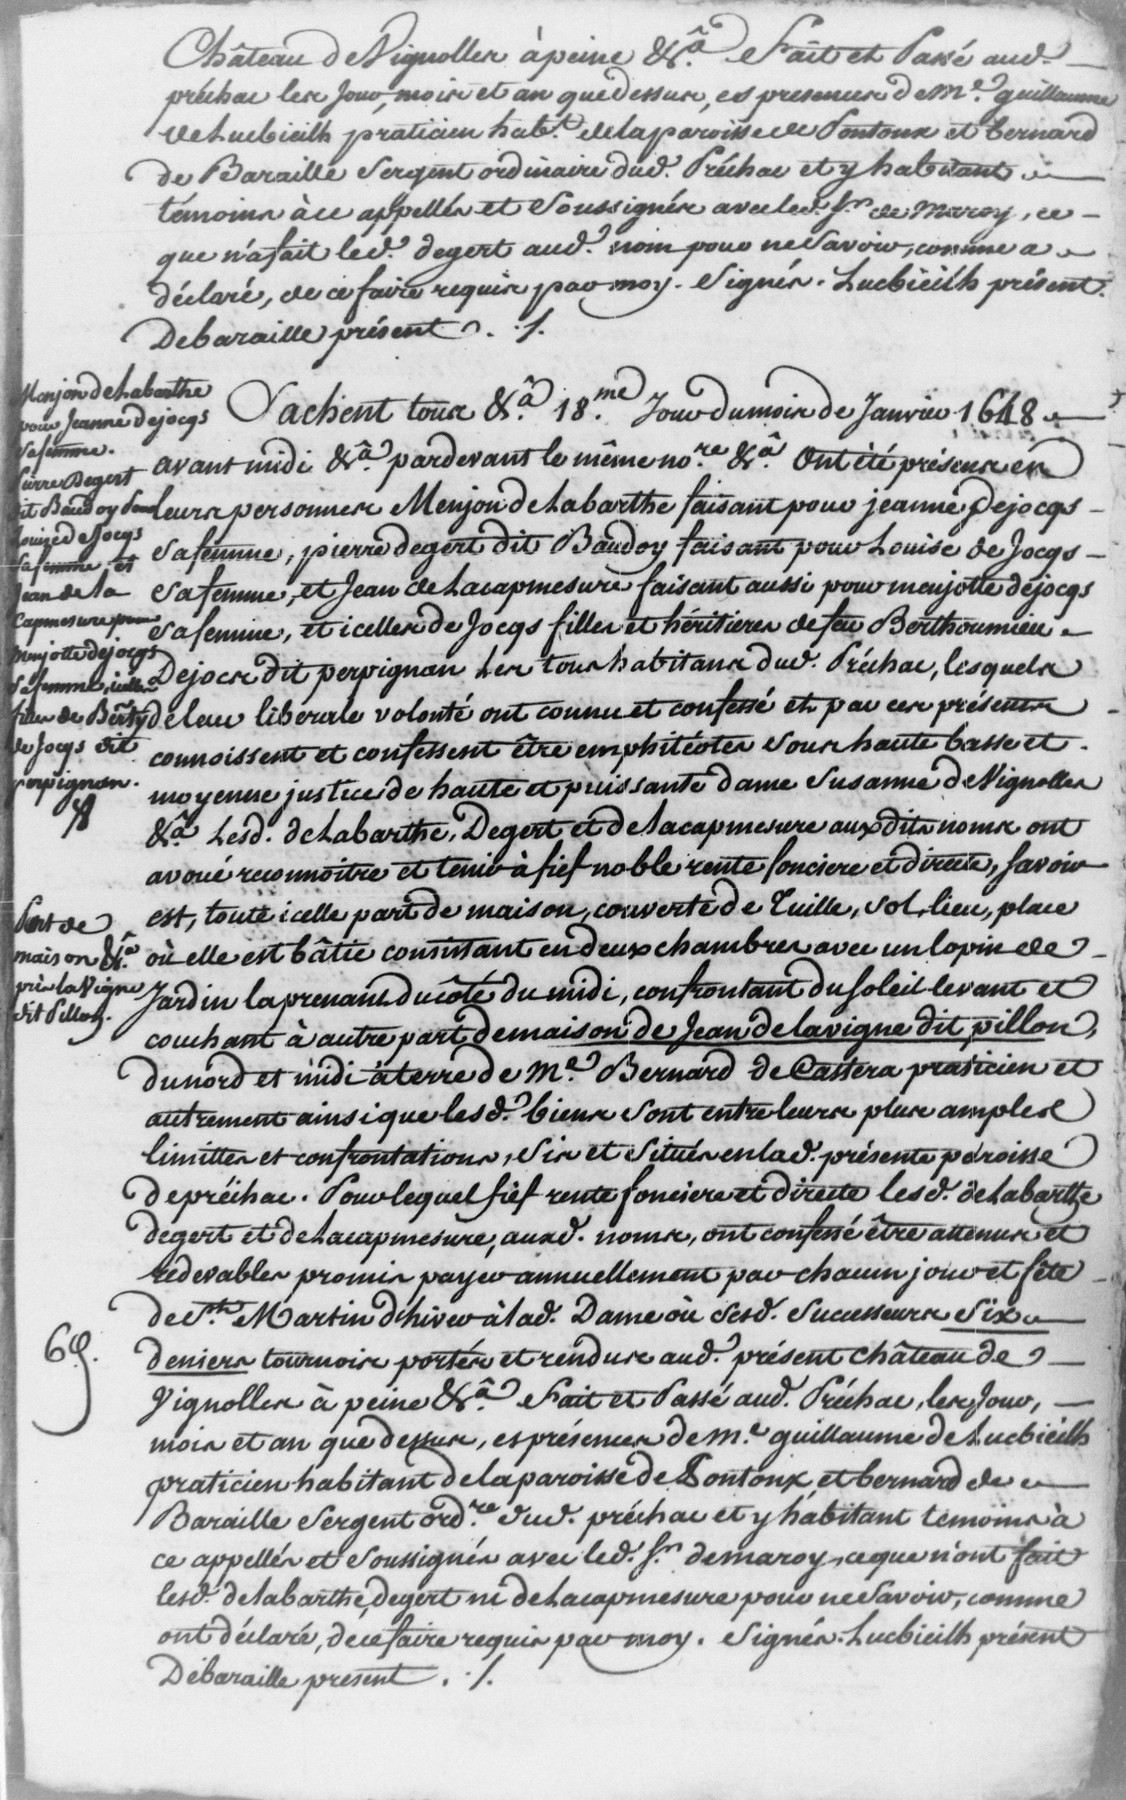 Château de Vignolles à peine &.ª Fait et Passé aud.
préchac les Jour, mois et an que dessus, es presences de M.e guillaume
de Lucbieilh praticien hab.t de la paroisse de Pontonx et bernard
de Baraille Sergent ordinaire dud. Préchac et y habitant
témoins à ce appellés et Soussignés avec led. S.r de Maroy, ce
que n'a fait led. degert aud. nom pour ne Savoir, comme a
déclaré, de ce faire requis par moy. Signés. Lucbieilh présent.
Debaraille présent ./.
Menjon de Labarthe
pour Jeanne Dejocqs
Safemme.
Pierre Degert
dit Baudoy pour
Louise deJocqs
Safemme, et
Jean de la
Capmesure pour
Menjotte dejocqs
Safemme, icelles
filles de Berth.
de Jocqs dit
perpignan.
Sachent tous &.ª 18.me Jour du mois de Janvier 1648
avant midi &.ª pardevant le même no.re &.ª Ont été présens en
leurs personnes Menjon de Labarthe faisant pour jeanne Dejocqs
Safemme, pierre degert dit Baudoy faisant pour Louise de Jocqs
Safemme, et Jean de Lacapmesure faisant aussi pour menjotte dejocqs
Safemme, et icelles de Jocqs filles et héritieres de feu Berthoumieu
Dejocs dit perpignan Les tous habitans dud. Préchac, lesquels
de leur liberale volonté ont connu et confessé et par ces présentes
connoissent et confessent être emphitéotes Sous haute basse et
moyenne justice de haute et puissante dame Susanne de Vignolles
&.ª Lesd. de Labarthe, Degert et de lacapmesure aux dits noms ont
avoué reconnoitre et tenir à fief noble rente fonciere et directe, savoir
est, toute icelle part de maison, couverte de Tuille, Sol, lieu, place
où elle est bâtie consistant en deux chambres avec un lopin de
Jardin la prenant du côté du midi, confrontant du soleil levant et
couchant à autre part de maison de Jean de lavigne dit pillon,
du nord et midi à terre de M.e Bernard de Castera praticien et
autrement ainsi que lesd. biens sont entre leurs plus amples
limittes et confrontations, Sis et Situés en lad. présente paroisse
de préchac. Pour lequel fief rente fonciere et directe lesd. de Labarthe
degert et de Lacapmesure, auxd. noms, ont confessé être attenus et
redevables promis payer annuellement par chacun jour et fête
de S.t Martin d'hiver à lad. Dame où Sesd. Successeurs Six
deniers tournois portés et rendus aud. présent château de
Vignolles à peine &.ª Fait et Passé aud. Préchac, les Jour,
mois et an que dessus, es présences de m.e guillaume de Lucbieilh
praticien habitant de la paroisse de Pontonx, et bernard de
Baraille Sergent ord.re dud. préchac et y habitant temoins à
ce appellés et Soussignés avec led. S.r de maroy, ce que n'ont fait
lesd. de labarthe, degert ni de Lacapmesure pour ne Savoir, comme
ont déclaré, de ce faire requis par moy. Signés. Lucbieilh présent
Debaraille present ./.
Part de
maison &.ª
près lavigne
dit Pillon.
6 d.